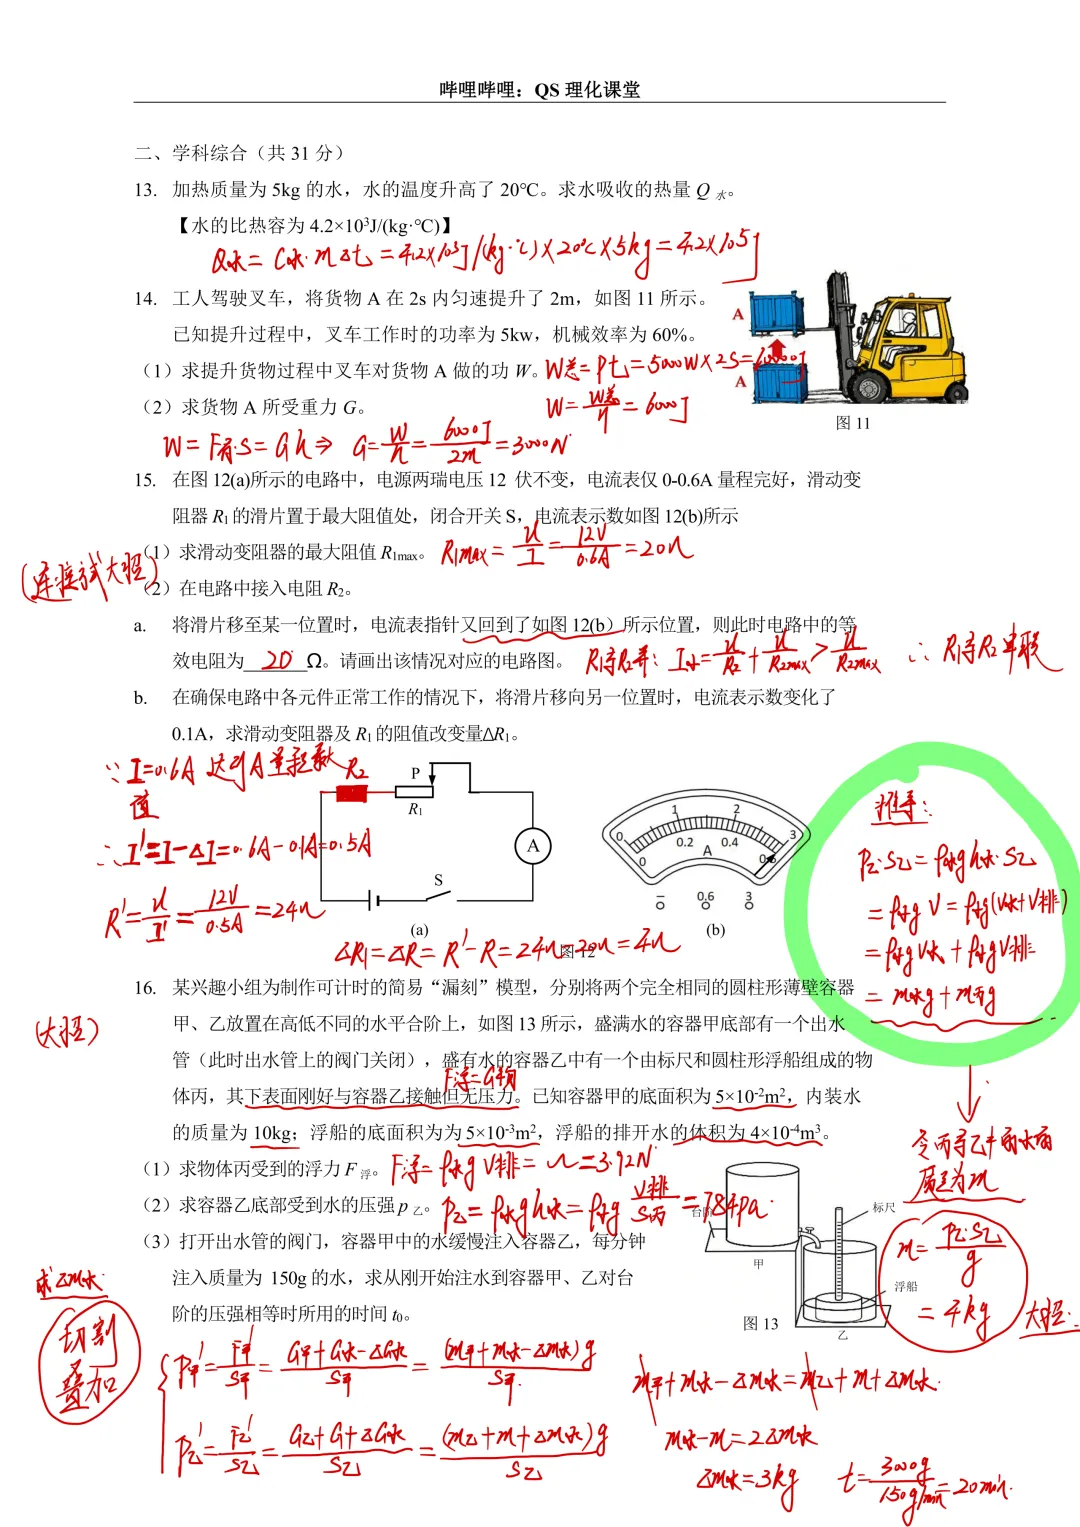 哔哩哔哩：QS 理化课堂
二、学科综合（共 31 分）
13. 加热质量为 5kg 的水，水的温度升高了 20℃。求水吸收的热量 Q 水。
【水的比热容为 4.2×10³J/(kg·℃)】
Q水=C水·m△t=4.2×10³J/(kg·℃)×20℃×5kg=4.2×10⁵J
14. 工人驾驶叉车，将货物 A 在 2s 内匀速提升了 2m，如图 11 所示。
已知提升过程中，叉车工作时的功率为 5kw，机械效率为 60%。
A
（1）求提升货物过程中叉车对货物 A 做的功 W。
W总=Pt=5000W×2S=10000J
A
（2）求货物 A 所受重力 G。
W=W总/η=6000J
图 11
W=F有·S=Gh⇒G=W/h=6000J/2m=3000N
15. 在图 12(a)所示的电路中，电源两瑞电压 12 伏不变，电流表仅 0-0.6A 量程完好，滑动变
阻器 R₁ 的滑片置于最大阻值处，闭合开关 S，电流表示数如图 12(b)所示
（1）求滑动变阻器的最大阻值 R1max。
R1max=U/I=12V/0.6A=20Ω
（2）在电路中接入电阻 R₂。
a. 将滑片移至某一位置时，电流表指针又回到了如图 12(b）所示位置，则此时电路中的等
效电阻为 20 Ω。请画出该情况对应的电路图。
∴R1与R2串联
b. 在确保电路中各元件正常工作的情况下，将滑片移向另一位置时，电流表示数变化了
0.1A，求滑动变阻器及 R₁ 的阻值改变量∆R₁。
∵I=0.6A 达到A量程最大
值
∴I'=I-△I=0.6A-0.1A=0.5A
R'=U/I'=12V/0.5A=24Ω
R2
P
R₁
A
S
(a)
0 1 2 3
0 0.2 0.4 0.6
A
− 0.6 3
(b)
△R1=△R=R'-R=24Ω-20Ω=4Ω
图 12
推导：
P乙·S乙=ρ水gh水·S乙
=ρ水gV=ρ水g(V水+V排)
=ρ水gV水+ρ水gV排
=m水g+m丙g
16. 某兴趣小组为制作可计时的简易“漏刻”模型，分别将两个完全相同的圆柱形薄壁容器
甲、乙放置在高低不同的水平台阶上，如图 13 所示，盛满水的容器甲底部有一个出水
管（此时出水管上的阀门关闭），盛有水的容器乙中有一个由标尺和圆柱形浮船组成的物
体丙，其下表面刚好与容器乙接触但无压力。已知容器甲的底面积为 5×10⁻²m²，内装水
的质量为 10kg；浮船的底面积为为 5×10⁻³m²，浮船的排开水的体积为 4×10⁻⁴m³。
（1）求物体丙受到的浮力 F 浮。
F浮=ρ水gV排=～=3.92N
（2）求容器乙底部受到水的压强 p 乙。
P乙=ρ水gh水=ρ水g V排/S丙=784pa
（3）打开出水管的阀门，容器甲中的水缓慢注入容器乙，每分钟
注入质量为 150g 的水，求从刚开始注水到容器甲、乙对台
阶的压强相等时所用的时间 t₀。
台阶
甲
标尺
浮船
乙
图 13
质量为m
m=P乙·S乙/g
=4kg
求△m水
切割
叠加
P甲'=F甲'/S甲=(G甲+G水-△G水)/S甲=(m甲+m水-△m水)g/S甲
P乙'=F乙'/S乙=(G乙+G+△G水)/S乙=(m乙+m+△m水)g/S乙
m甲+m水-△m水=m乙+m+△m水
m水-m=2△m水
△m水=3kg
t=3000g/150g/min=20min